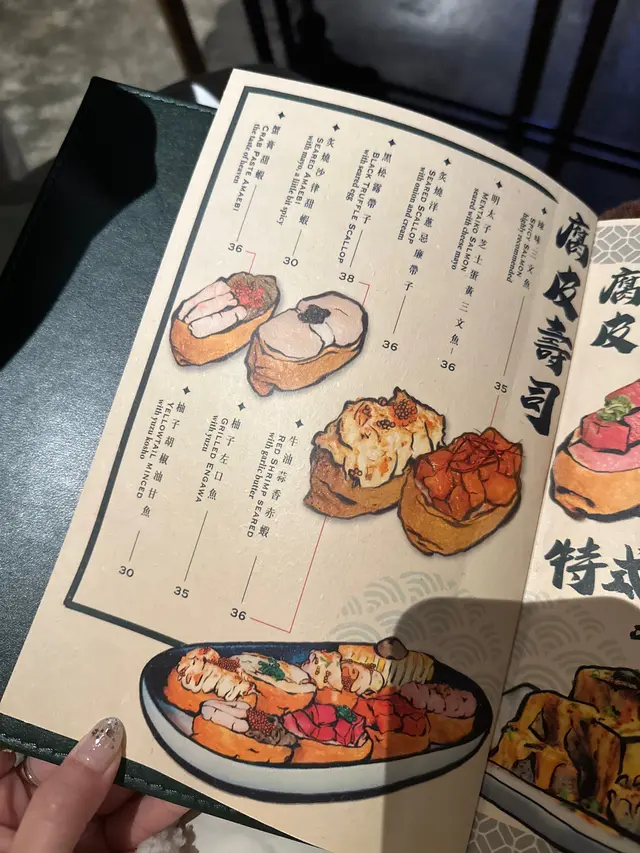 腐皮壽司
辣味三文魚
SPICY SALMON
highly recommended
35
明太子芝士蛋黃三文魚
MENTAIKO SALMON
seared with cheese mayo
36
炙燒洋蔥忌廉帶子
SEARED SCALLOP
with onion and cream
36
黑松露帶子
BLACK TRUFFLE SCALLOP
with seared egg
38
炙燒沙律甜蝦
SEARED AMAEBI
with mayo, a little bit spicy
30
蟹膏甜蝦
CRAB PASTE AMAEBI
the taste of heaven
36
牛油蒜香赤蝦
RED SHRIMP SEARED
with garlic butter
36
柚子左口魚
GRILLED ENGAWA
with yuzu
35
柚子胡椒油甘魚
YELLOWTAIL MINCED
with yuzu kosho
30
腐皮
特式